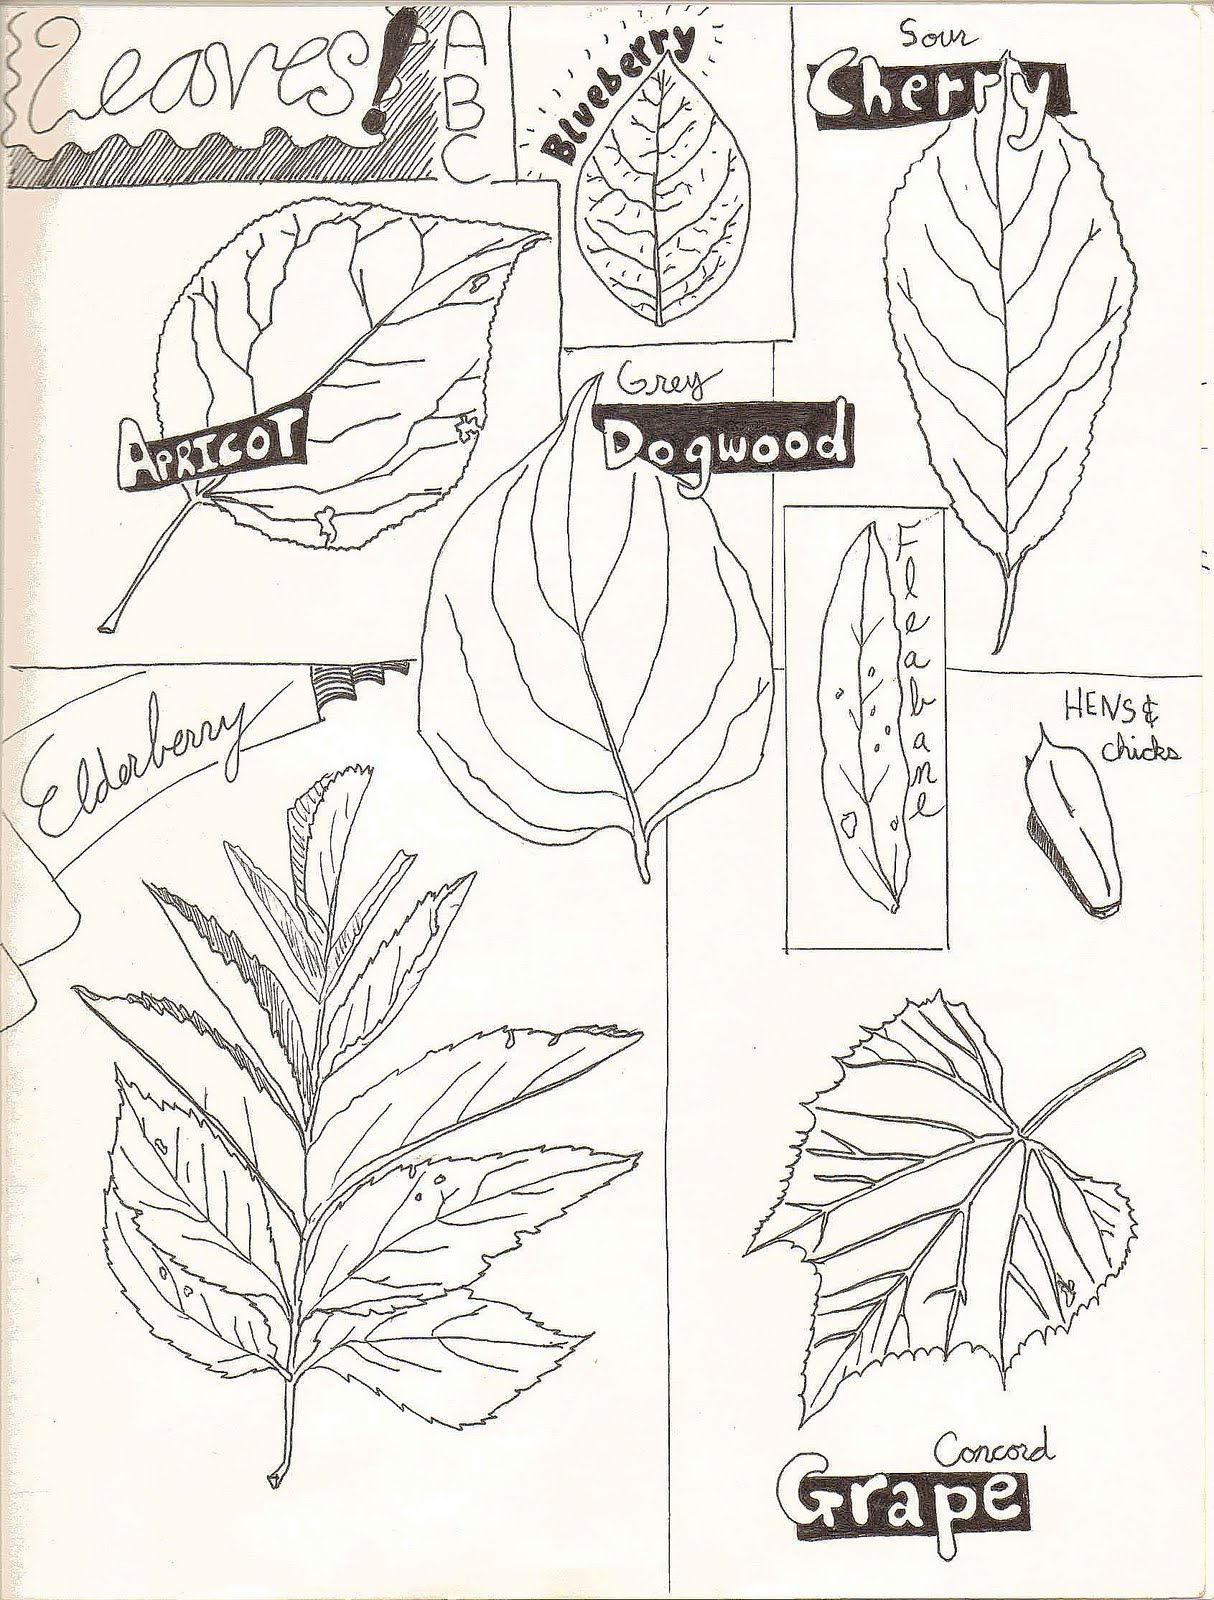 Leaves!
A
B
C
Blueberry
Sour
Cherry
APRICOT
Grey
Dogwood
Fleabane
Elderberry
HENS &
chicks
Concord
Grape